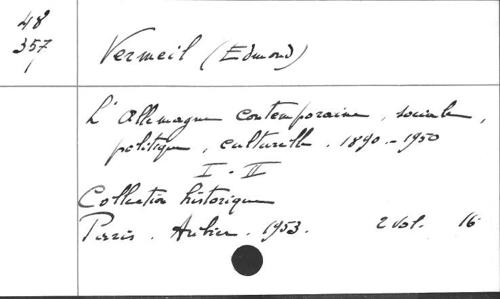 48
357
1
Vermeil (Edmond)
L'Allemagne contemporaine, sociale,
politique, culturelle. 1890-1950
I-II
Collection historique
Paris. Aubier. 1953. 2 vol. 16